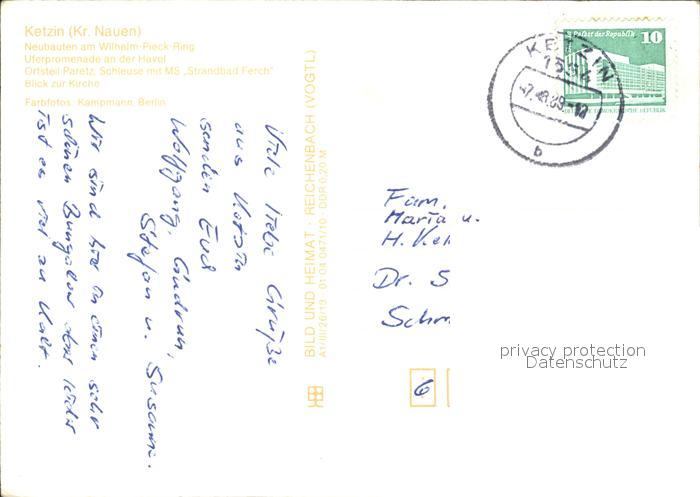 Ketzin (Kr. Nauen)
Neubauten am Wilhelm-Pieck-Ring
Uferpromenade an der Havel
Ortsteil Paretz, Schleuse mit MS „Strandbad Ferch"
Blick zur Kirche
Farbfotos: Kampmann, Berlin
Viele liebe Grüße
aus Ketzin
senden Euch
Wolfgang, Gudrun,
Stefan u. Susanne.
Wir sind hier in einem sehr
schönen Bungalow aber leider
ist es viel zu kalt.
BILD UND HEIMAT · REICHENBACH (VOGTL)
A1/III/26/13 01 04 0471/10 DDR 0,20 M
KETZIN
1554
b
Palast der Republik
10
Fam.
Maria u.
H. Kel
Dr. S
Schm
6
privacy protection
Datenschutz